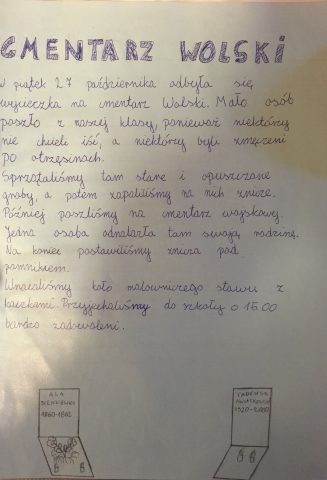 CMENTARZ WOLSKI
W piątek 27 października odbyła się
wycieczka na cmentarz Wolski. Mało osób
poszło z naszej klasy, ponieważ niektórzy
nie chcieli iść, a niektórzy byli zmęczeni
po otrzęsinach.
Sprzątaliśmy tam stare i opuszczone
groby, a potem zapaliliśmy na nich znicze.
Później poszliśmy na cmentarz wojskowy.
Jedna osoba odnalazła tam swoją rodzinę.
Na koniec postawiliśmy znicza pod
pomnikiem.
Wracaliśmy koło malowniczego stawu z
kaczkami. Przyjechaliśmy do szkoły o 15.00
bardzo zadowoleni.
ALA
1860-1862
TADEUSZ
1920-2000